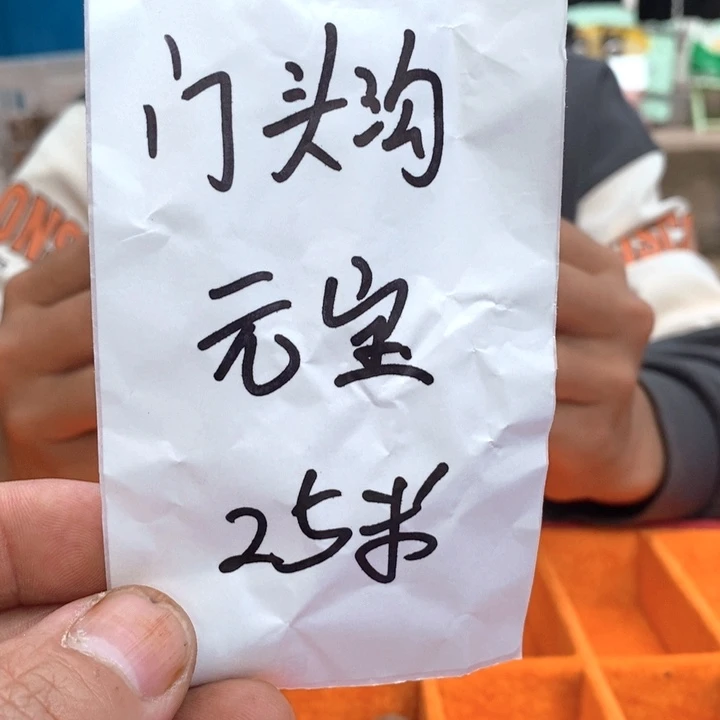 门头沟
元宝
25米